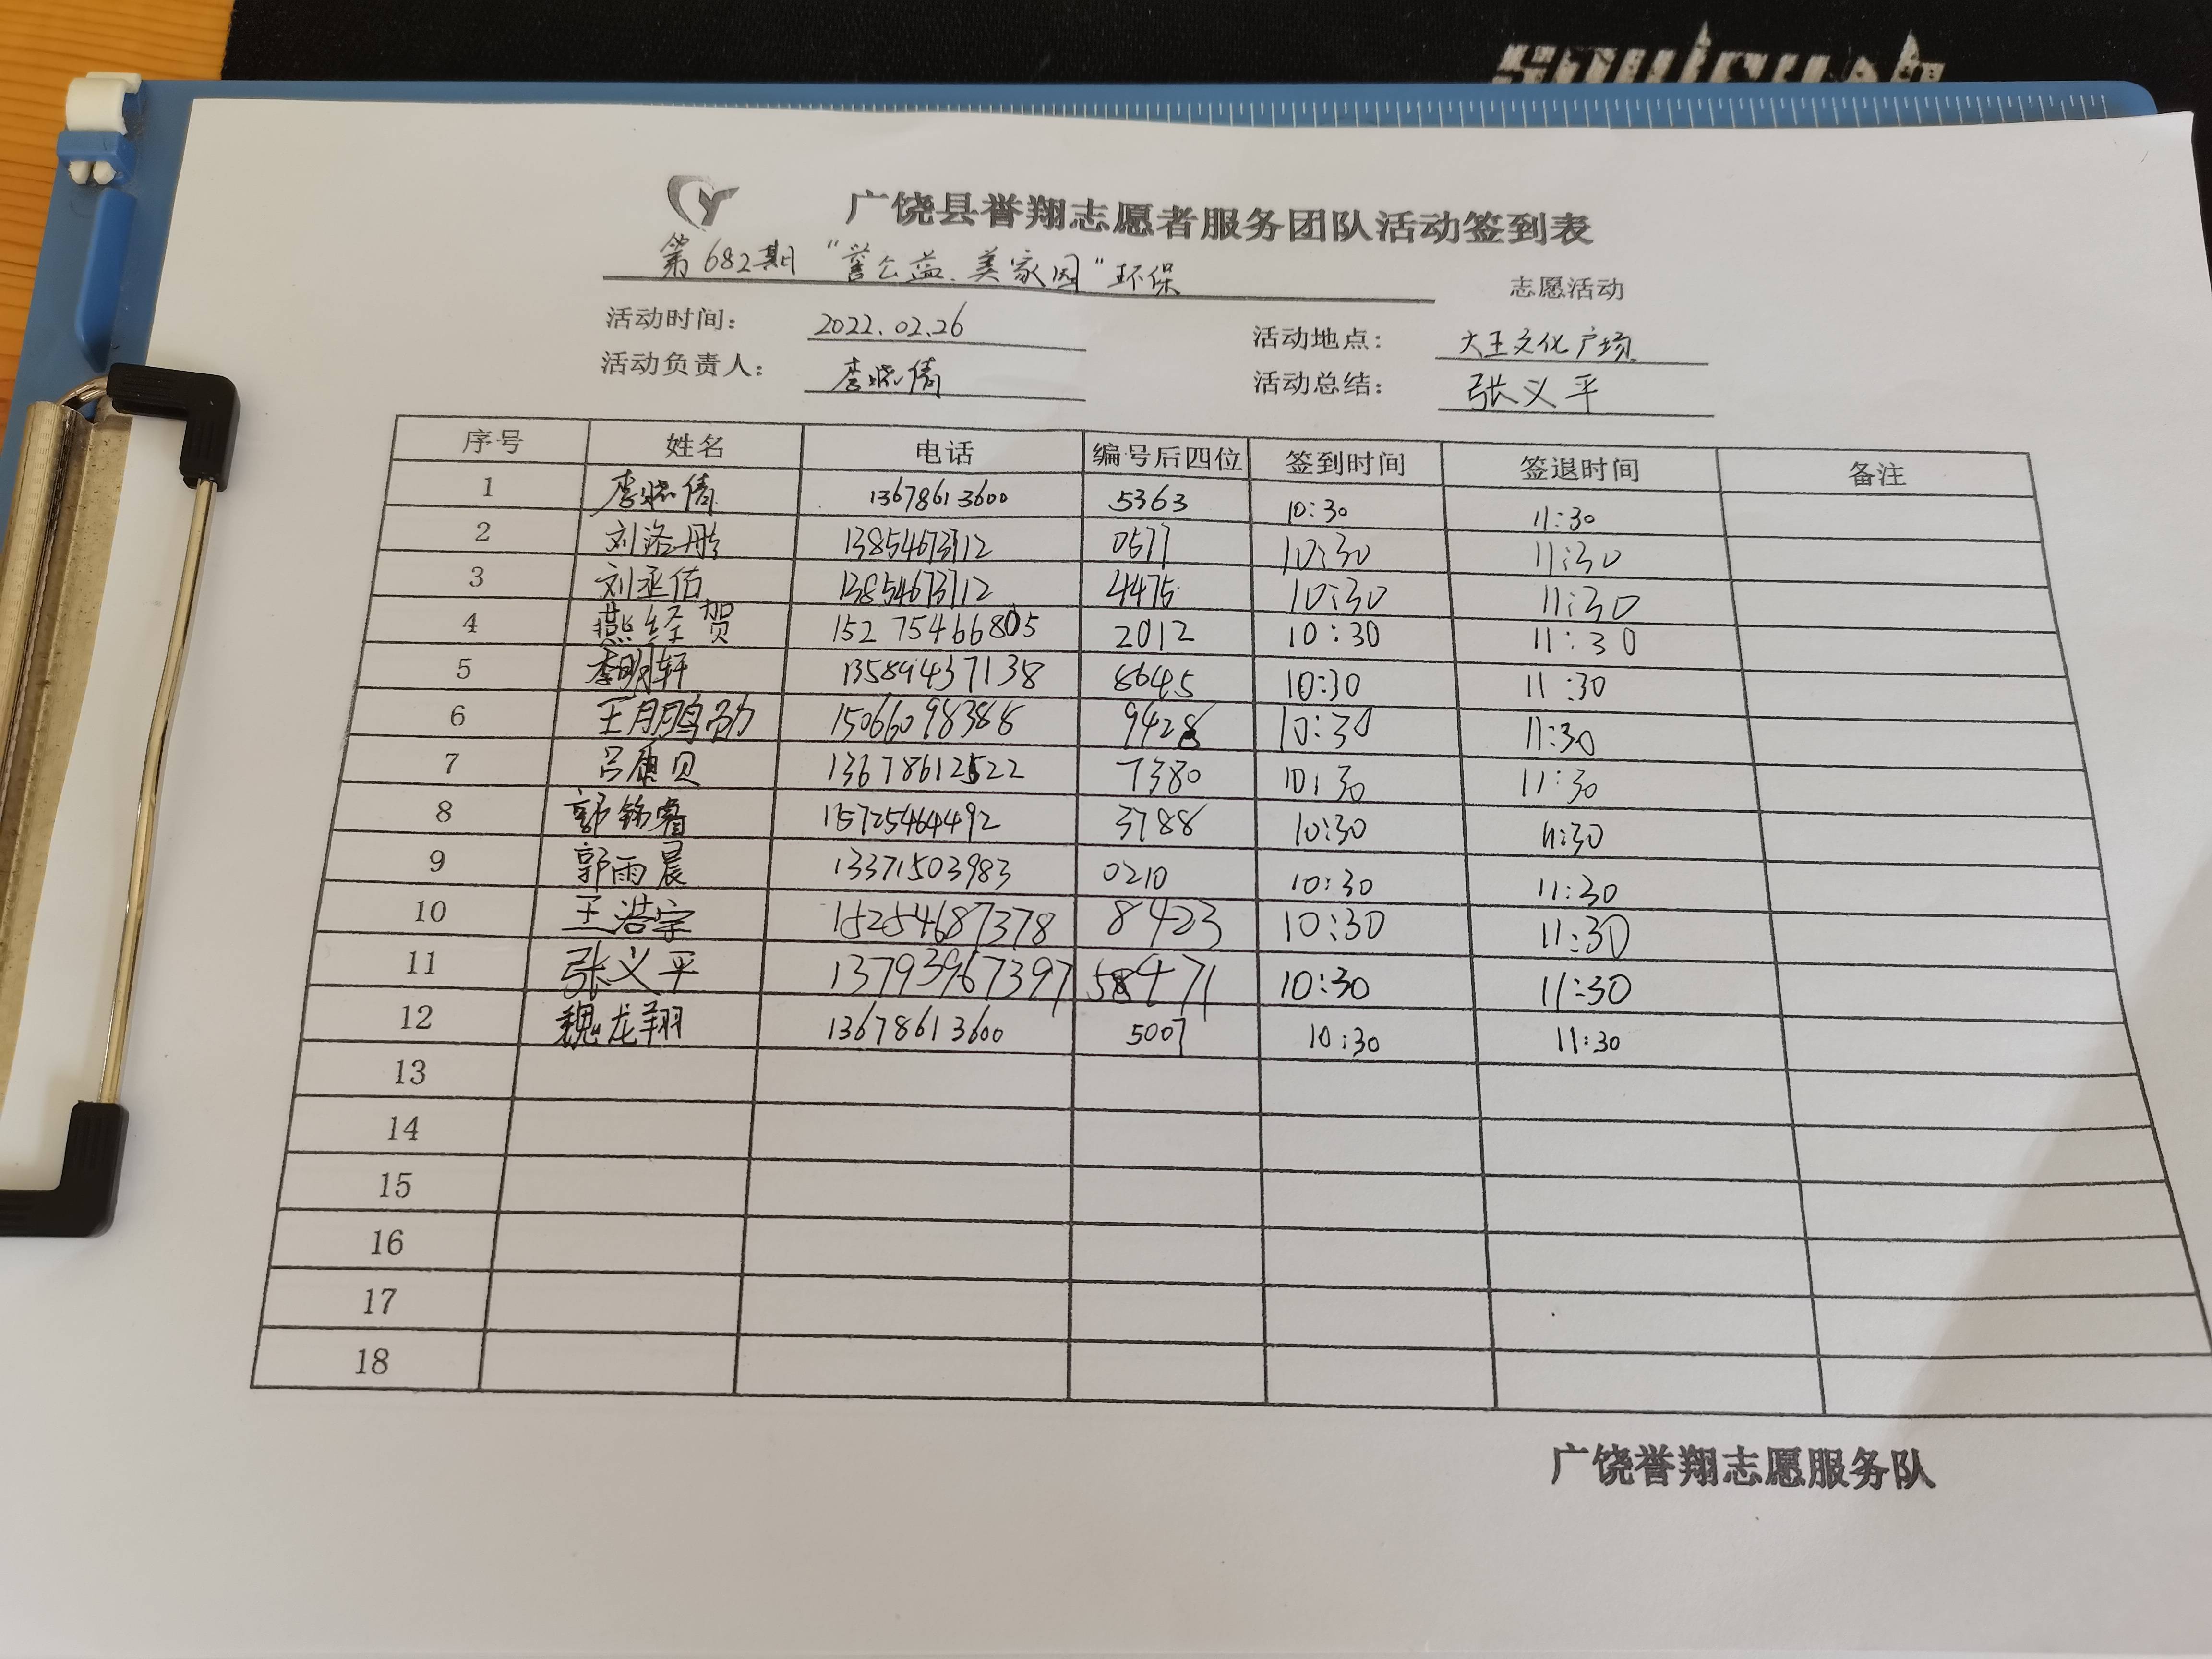 广饶县誉翔志愿者服务团队活动签到表
第682期 “誉公益.美家园”环保 志愿活动
活动时间: 2022.02.26 活动地点: 大王文化广场
活动负责人: 李晓倩 活动总结: 张义平
序号 姓名 电话 编号后四位 签到时间 签退时间 备注
1 李晓倩 13678613600 5363 10:30 11:30
2 刘洺彤 13854673712 0577 10:30 11:30
3 刘丞佑 13854673712 4475 10:30 11:30
4 燕经贺 15275466805 2012 10:30 11:30
5 李明轩 13589437138 8645 10:30 11:30
6 王鹏勋 15066098388 9428 10:30 11:30
7 吕康贝 13678612522 7380 10:30 11:30
8 郭锦睿 15725464492 3788 10:30 11:30
9 郭雨晨 13371503983 0210 10:30 11:30
10 王浩宇 15254687378 8423 10:30 11:30
11 张义平 13793967397 10:30 11:30
12 魏龙翔 13678613600 5007 10:30 11:30
13
14
15
16
17
18
广饶誉翔志愿服务队